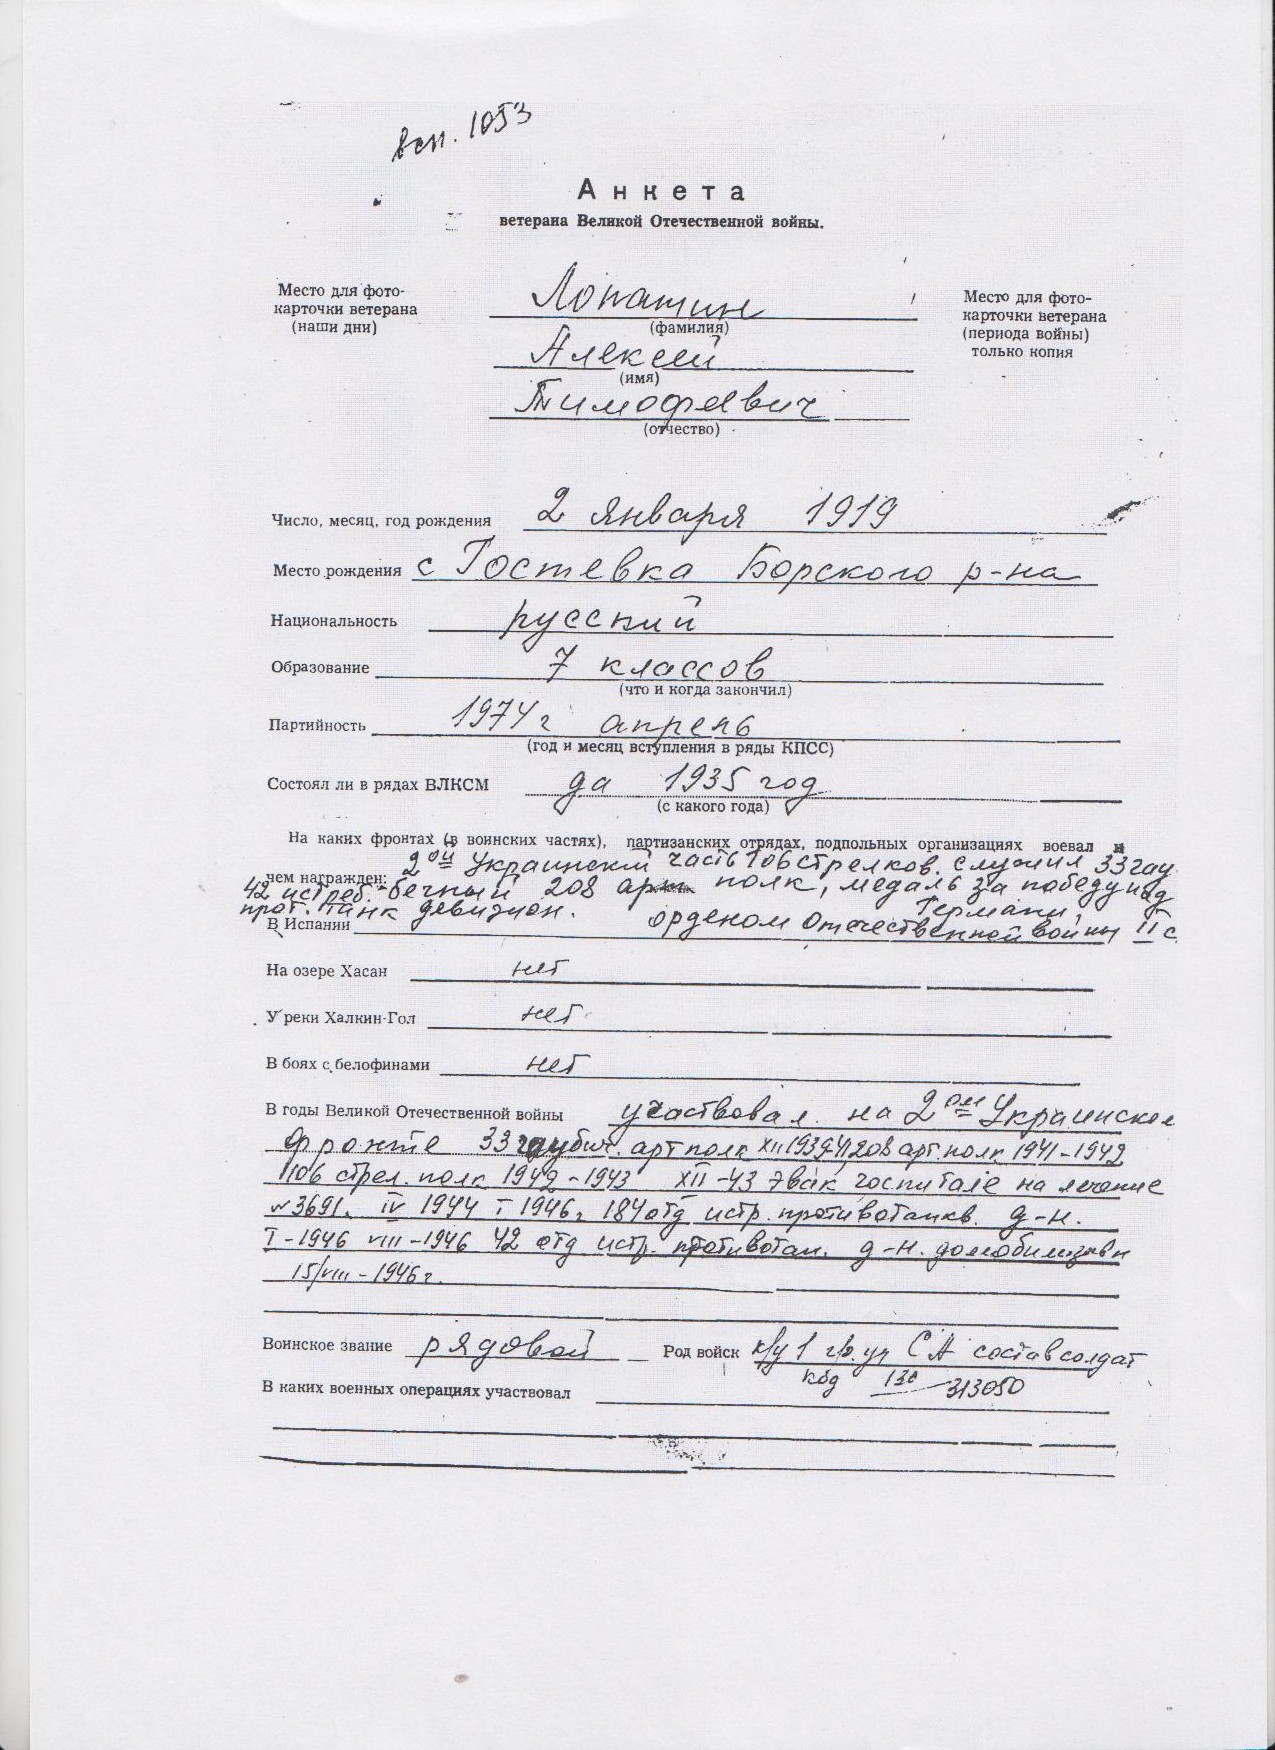 всп. 1053
Анкета
ветерана Великой Отечественной войны.
Место для фото-
карточки ветерана
(наши дни)
Лопатин
(фамилия)
Алексей
(имя)
Тимофеевич
(отчество)
Место для фото-
карточки ветерана
(периода войны)
только копия
Число, месяц, год рождения 2 января 1919
Место рождения с Гостевка Борского р-на
Национальность русский
Образование 7 классов
(что и когда закончил)
Партийность 1974 г апрель
(год и месяц вступления в ряды КПСС)
Состоял ли в рядах ВЛКСМ да 1935 год
(с какого года)
На каких фронтах (в воинских частях), партизанских отрядах, подпольных организациях воевал и
чем награжден: 2ой Украинский часть 106 стрелков. служил 33 гау
42 истреб. -бечный 208 арт полк, медаль за победу над
прот. танк девизион. Германи,
В Испании орденом Отечественной войны II с
На озере Хасан нет
У реки Халкин-Гол нет
В боях с белофинами нет
В годы Великой Отечественной войны участвовал на 2ом Украинском
фронте 33 гаубич. арт полк XII 1939-41, 208 арт. полк 1941-1942
1106 стрел. полк 1942-1943 XII-43 эвак госпитале на лечение
№3691. IV 1944 I 1946г 184 отд истр. противотанкв. д-н.
I-1946 VIII-1946 42 отд истр. противотан. д-н.
15/VIII-1946г.
Воинское звание рядовой Род войск СА состав солдат
313050
В каких военных операциях участвовал